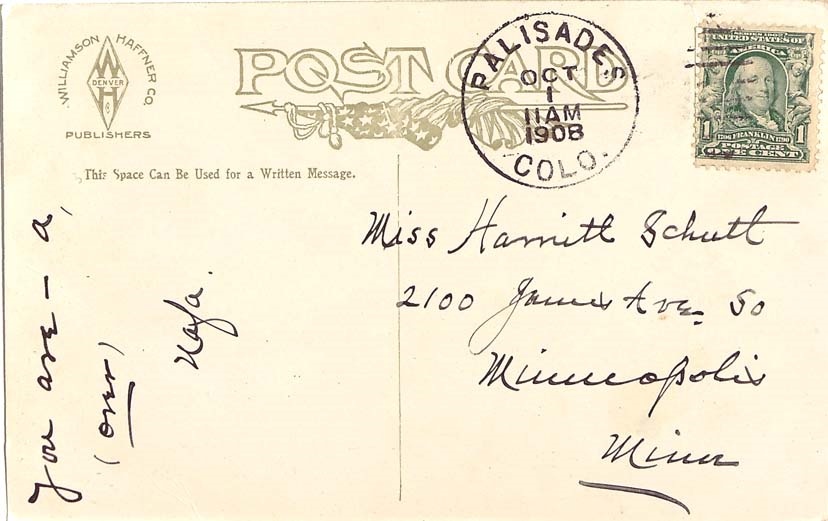 WILLIAMSON HAFFNER CO.
W
DENVER
H
Co
PUBLISHERS
POST CARD
PALISADES
OCT
1
11AM
1908
COLO.
SERIES 1902
UNITED STATES OF
AMERICA
1 1706 FRANKLIN 1790 1
POSTAGE
ONE CENT
This Space Can Be Used for a Written Message.
You are — a,
(over)
Miss Harriett Schutt
2100 James Ave. So
Minneapolis
Minn